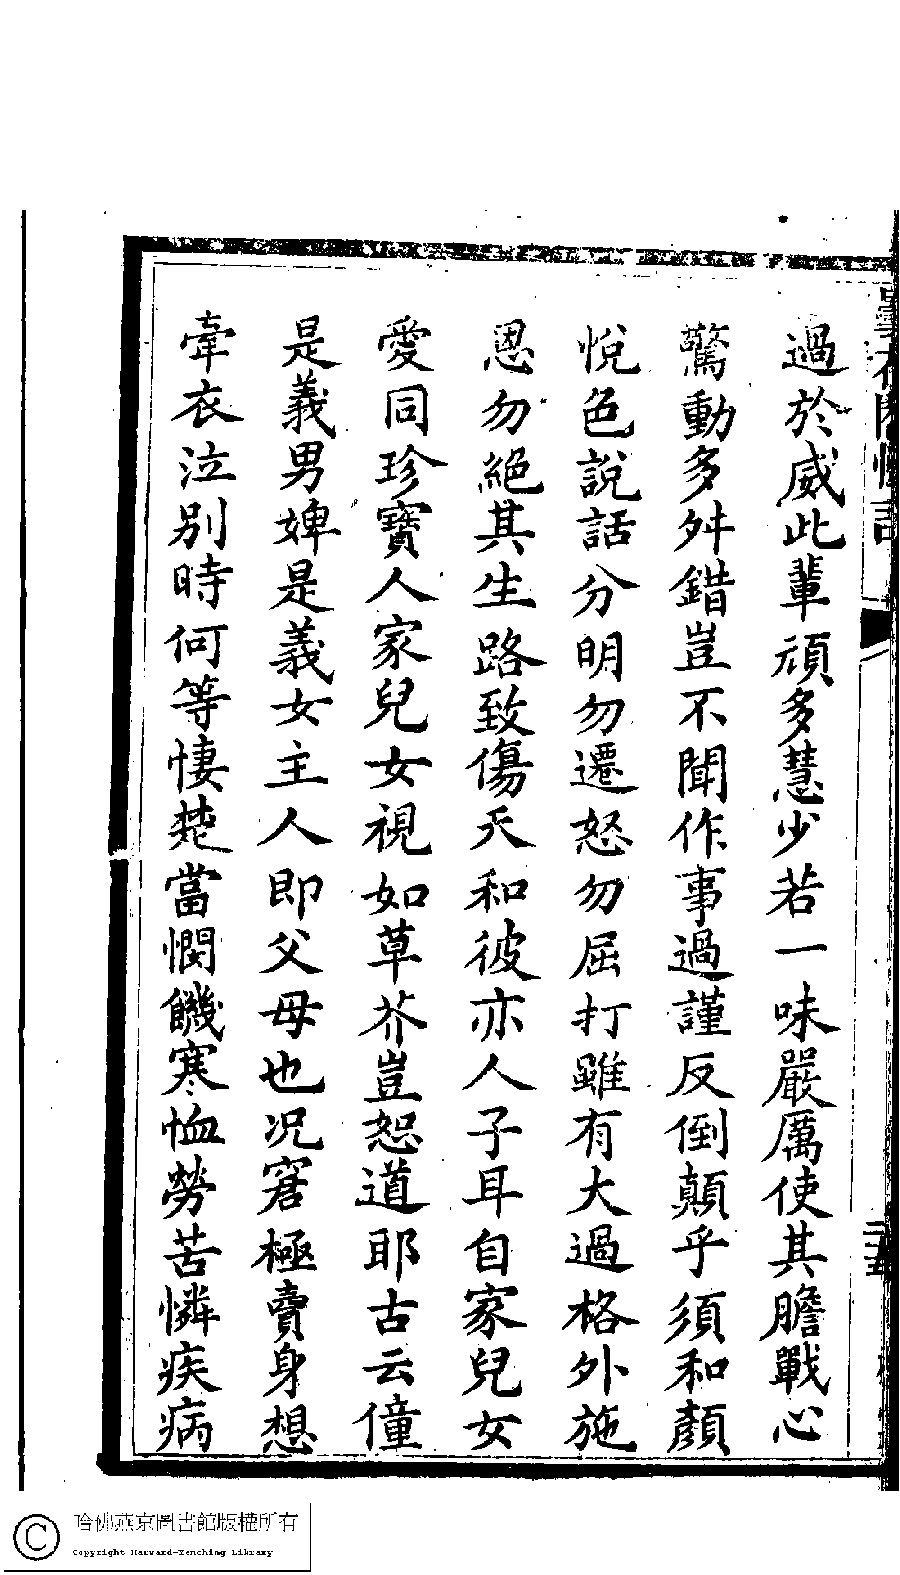 過於威此輩頑多慧少若一味嚴厲使其膽戰心
驚動多舛錯豈不聞作事過謹反倒顛乎須和顏
悅色說話分明勿遷怒勿屈打雖有大過格外施
恩勿絕其生路致傷天和彼亦人子耳自家兒女
愛同珍寶人家兒女視如草芥豈恕道耶古云僮
是義男婢是義女主人即父母也况窘極賣身想
牽衣泣別時何等悽楚當憫饑寒恤勞苦憐疾病
二十五
哈佛燕京圖書館版權所有
Copyright Harvard-Yenching Library